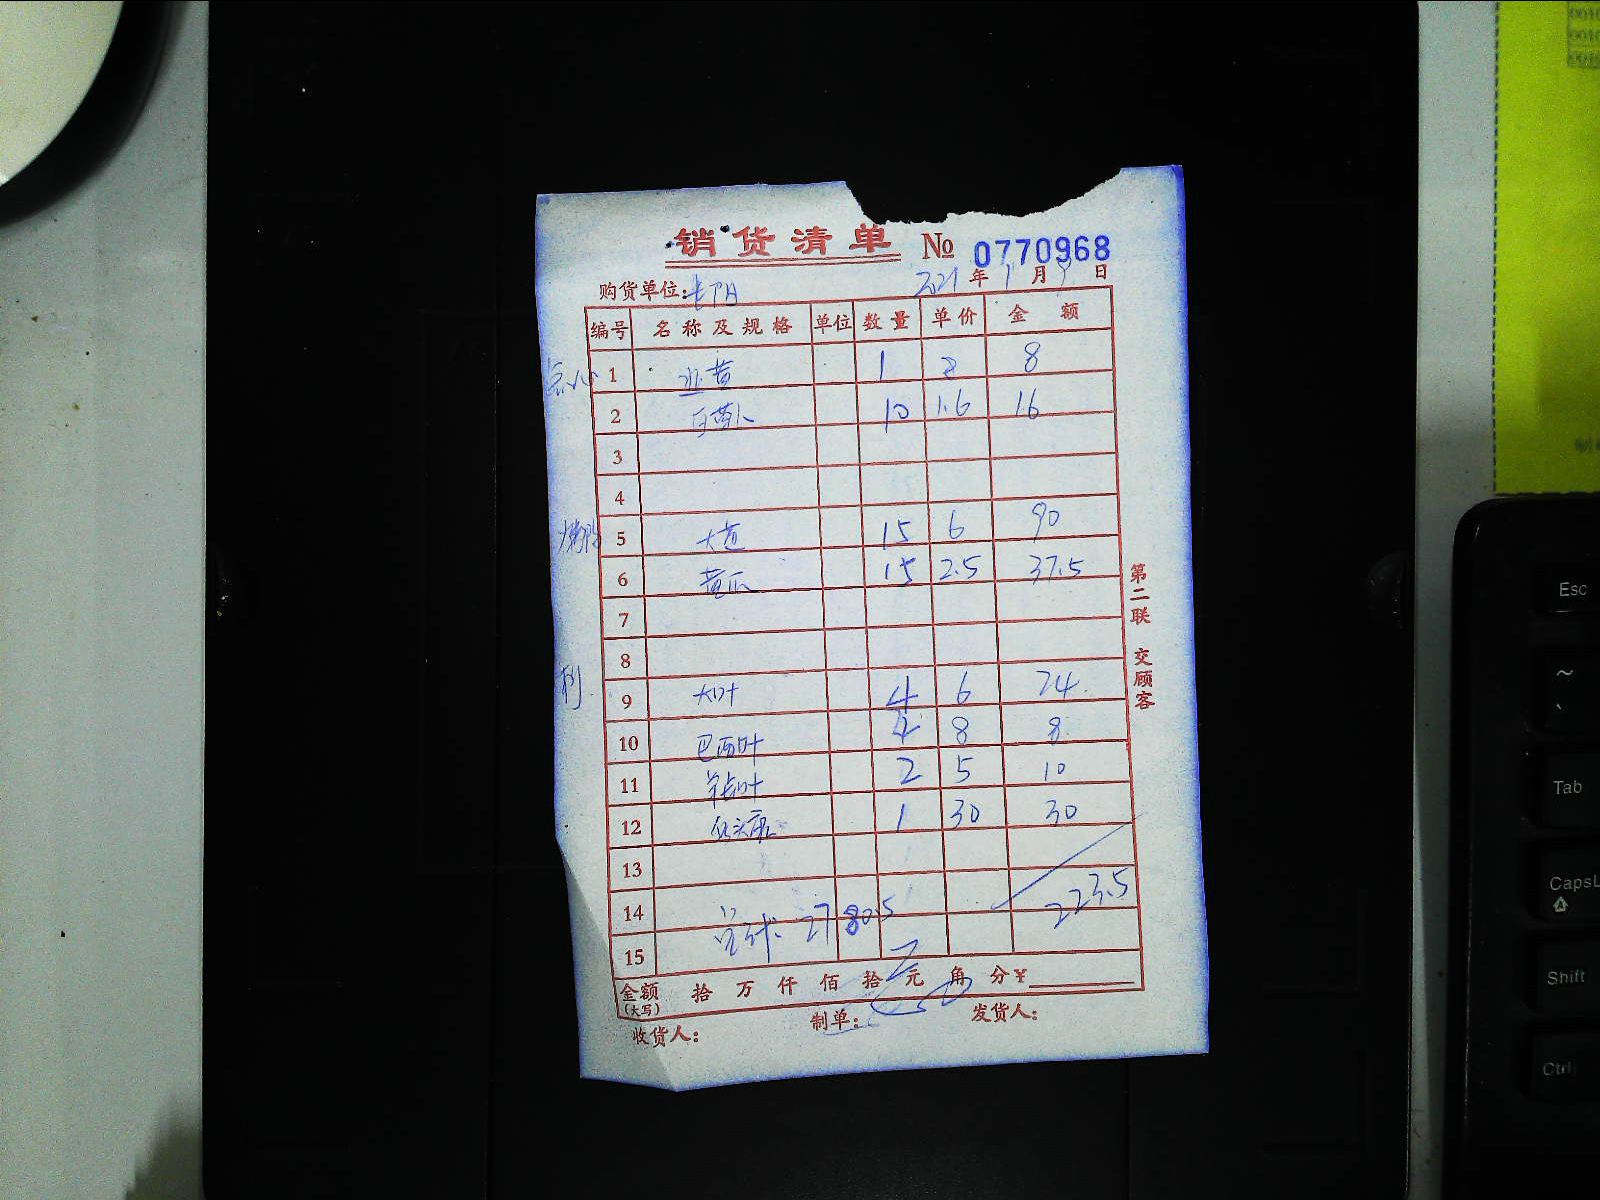 销货清单 № 0770968
购货单位: 2021年1月 日
编号 名称及规格 单位 数量 单价 金额
点心 1 韭黄 1 8 8
2 白萝卜 10 1.6 16
3
4
烧腊 5 大葱 15 6 90
6 黄瓜 15 2.5 37.5
7
8
9 大叶 4 6 24
10 巴西叶 8 8
11 羊长叶 2 5 10
12 1 30 30
13
14 223.5
15 总计: 2780.5
金额(大写) 拾 万 仟 佰 拾 元 角 分 ¥
收货人: 制单: 发货人:
第二联 交顾客
Esc
~
Tab
CapsL
Shift
Ctrl